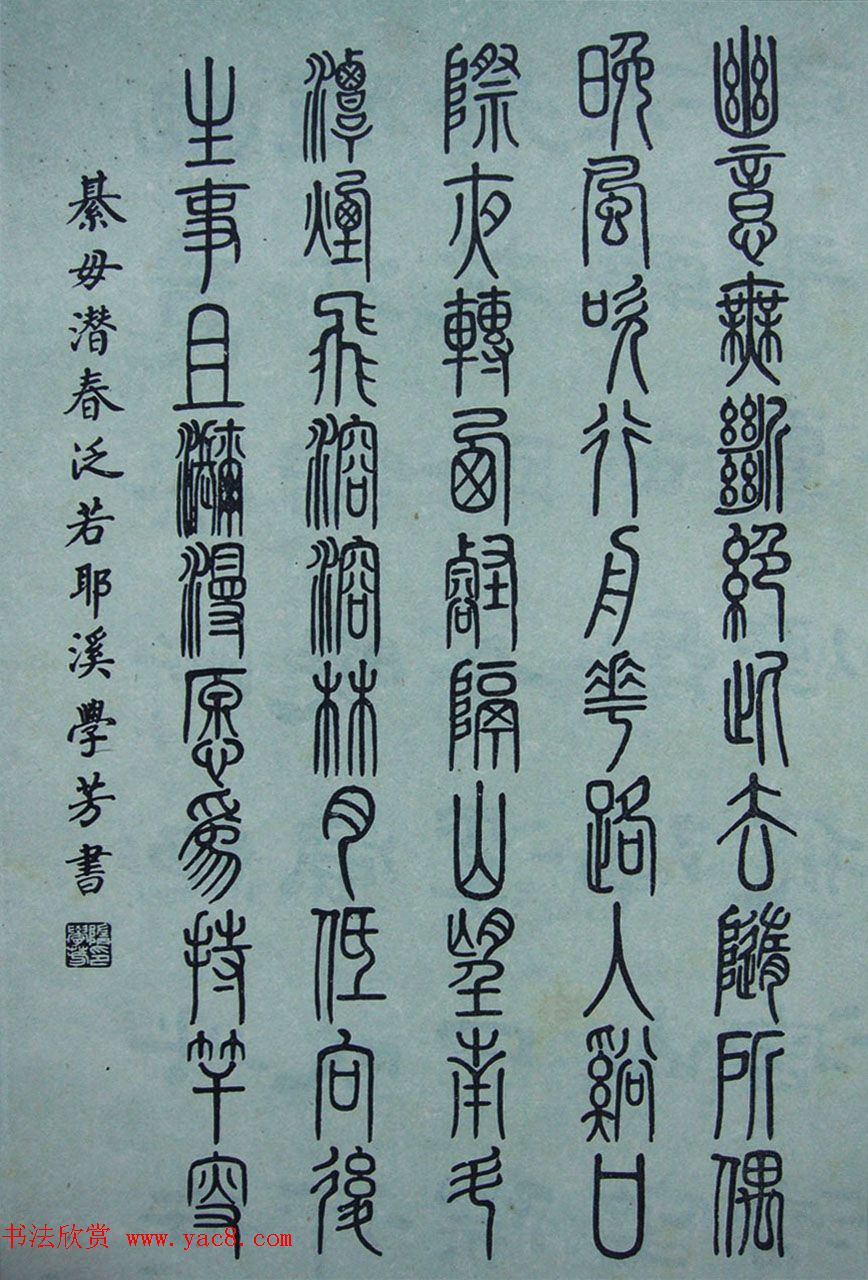 幽意無斷絕此去隨所偶
晚風吹行舟華路入谿口
際夜轉西壑隔山望南斗
潭煙飛溶溶林月低向後
生事且瀰漫愿爲持竿叟
綦毋潜春泛若耶溪學芳書
书法欣赏 www.yac8.com